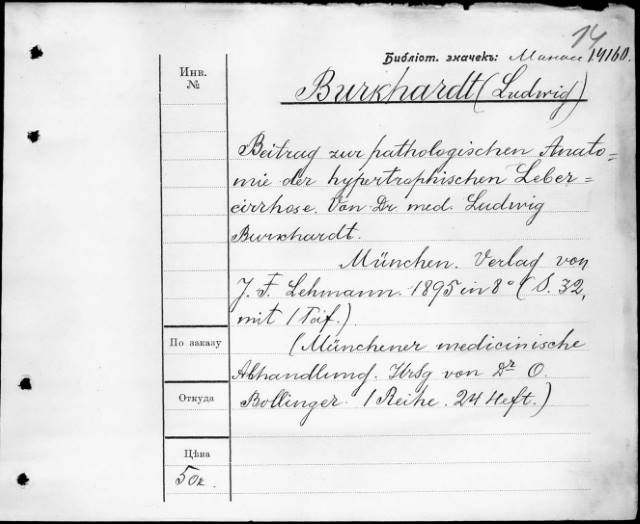 14
Библіот. значекъ: 14160.
Инв.
№
Burkhardt (Ludwig)
Beitrag zur pathologischen Anato=
mie der hypertrophischen Leber=
cirrhose. Von Dr med. Ludwig
Burkhardt.
München. Verlag von
J. F. Lehmann. 1895 in 8° (S. 32,
mit 1 Taf.)
По заказу
(Münchener medicinische
Abhandlung. Hrsg von Dr O.
Откуда
Bollinger. 1 Reihe. 24 Heft.)
Цѣна
50к.